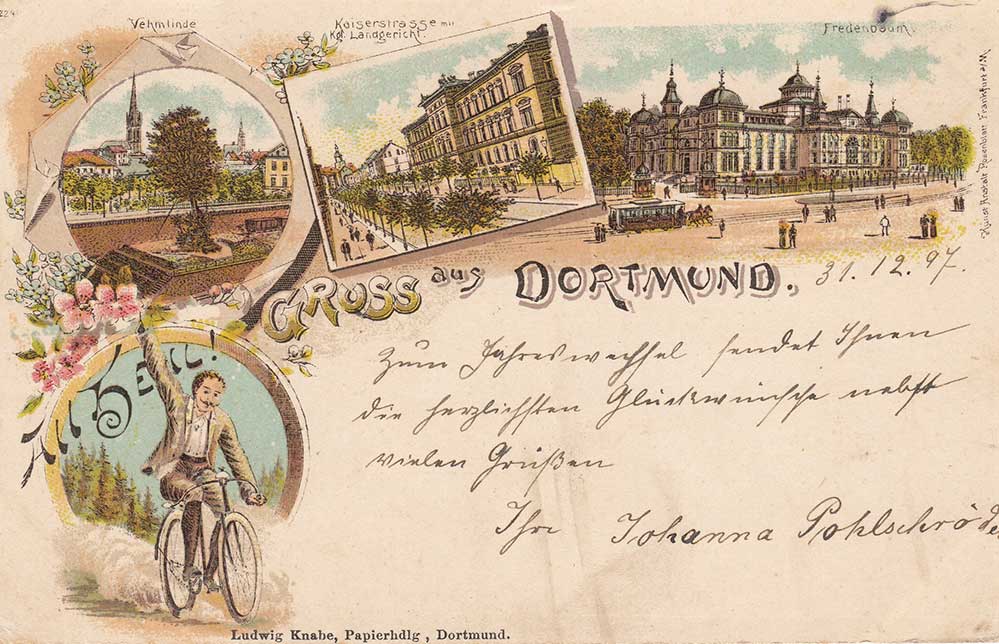 224
Vehmlinde
Kaiserstrasse mit
Kgl. Landgericht.
Fredenbaum.
Kunst Anstalt Rosenblatt Frankfurt a/M.
GRUSS aus DORTMUND.
31.12.97.
Zum Jahreswechsel sendet Ihnen
die herzlichsten Glückwünsche nebst
vielen Grüßen
Ihre Johanna Pohlschröder
All Heil!
Ludwig Knabe, Papierhdlg, Dortmund.